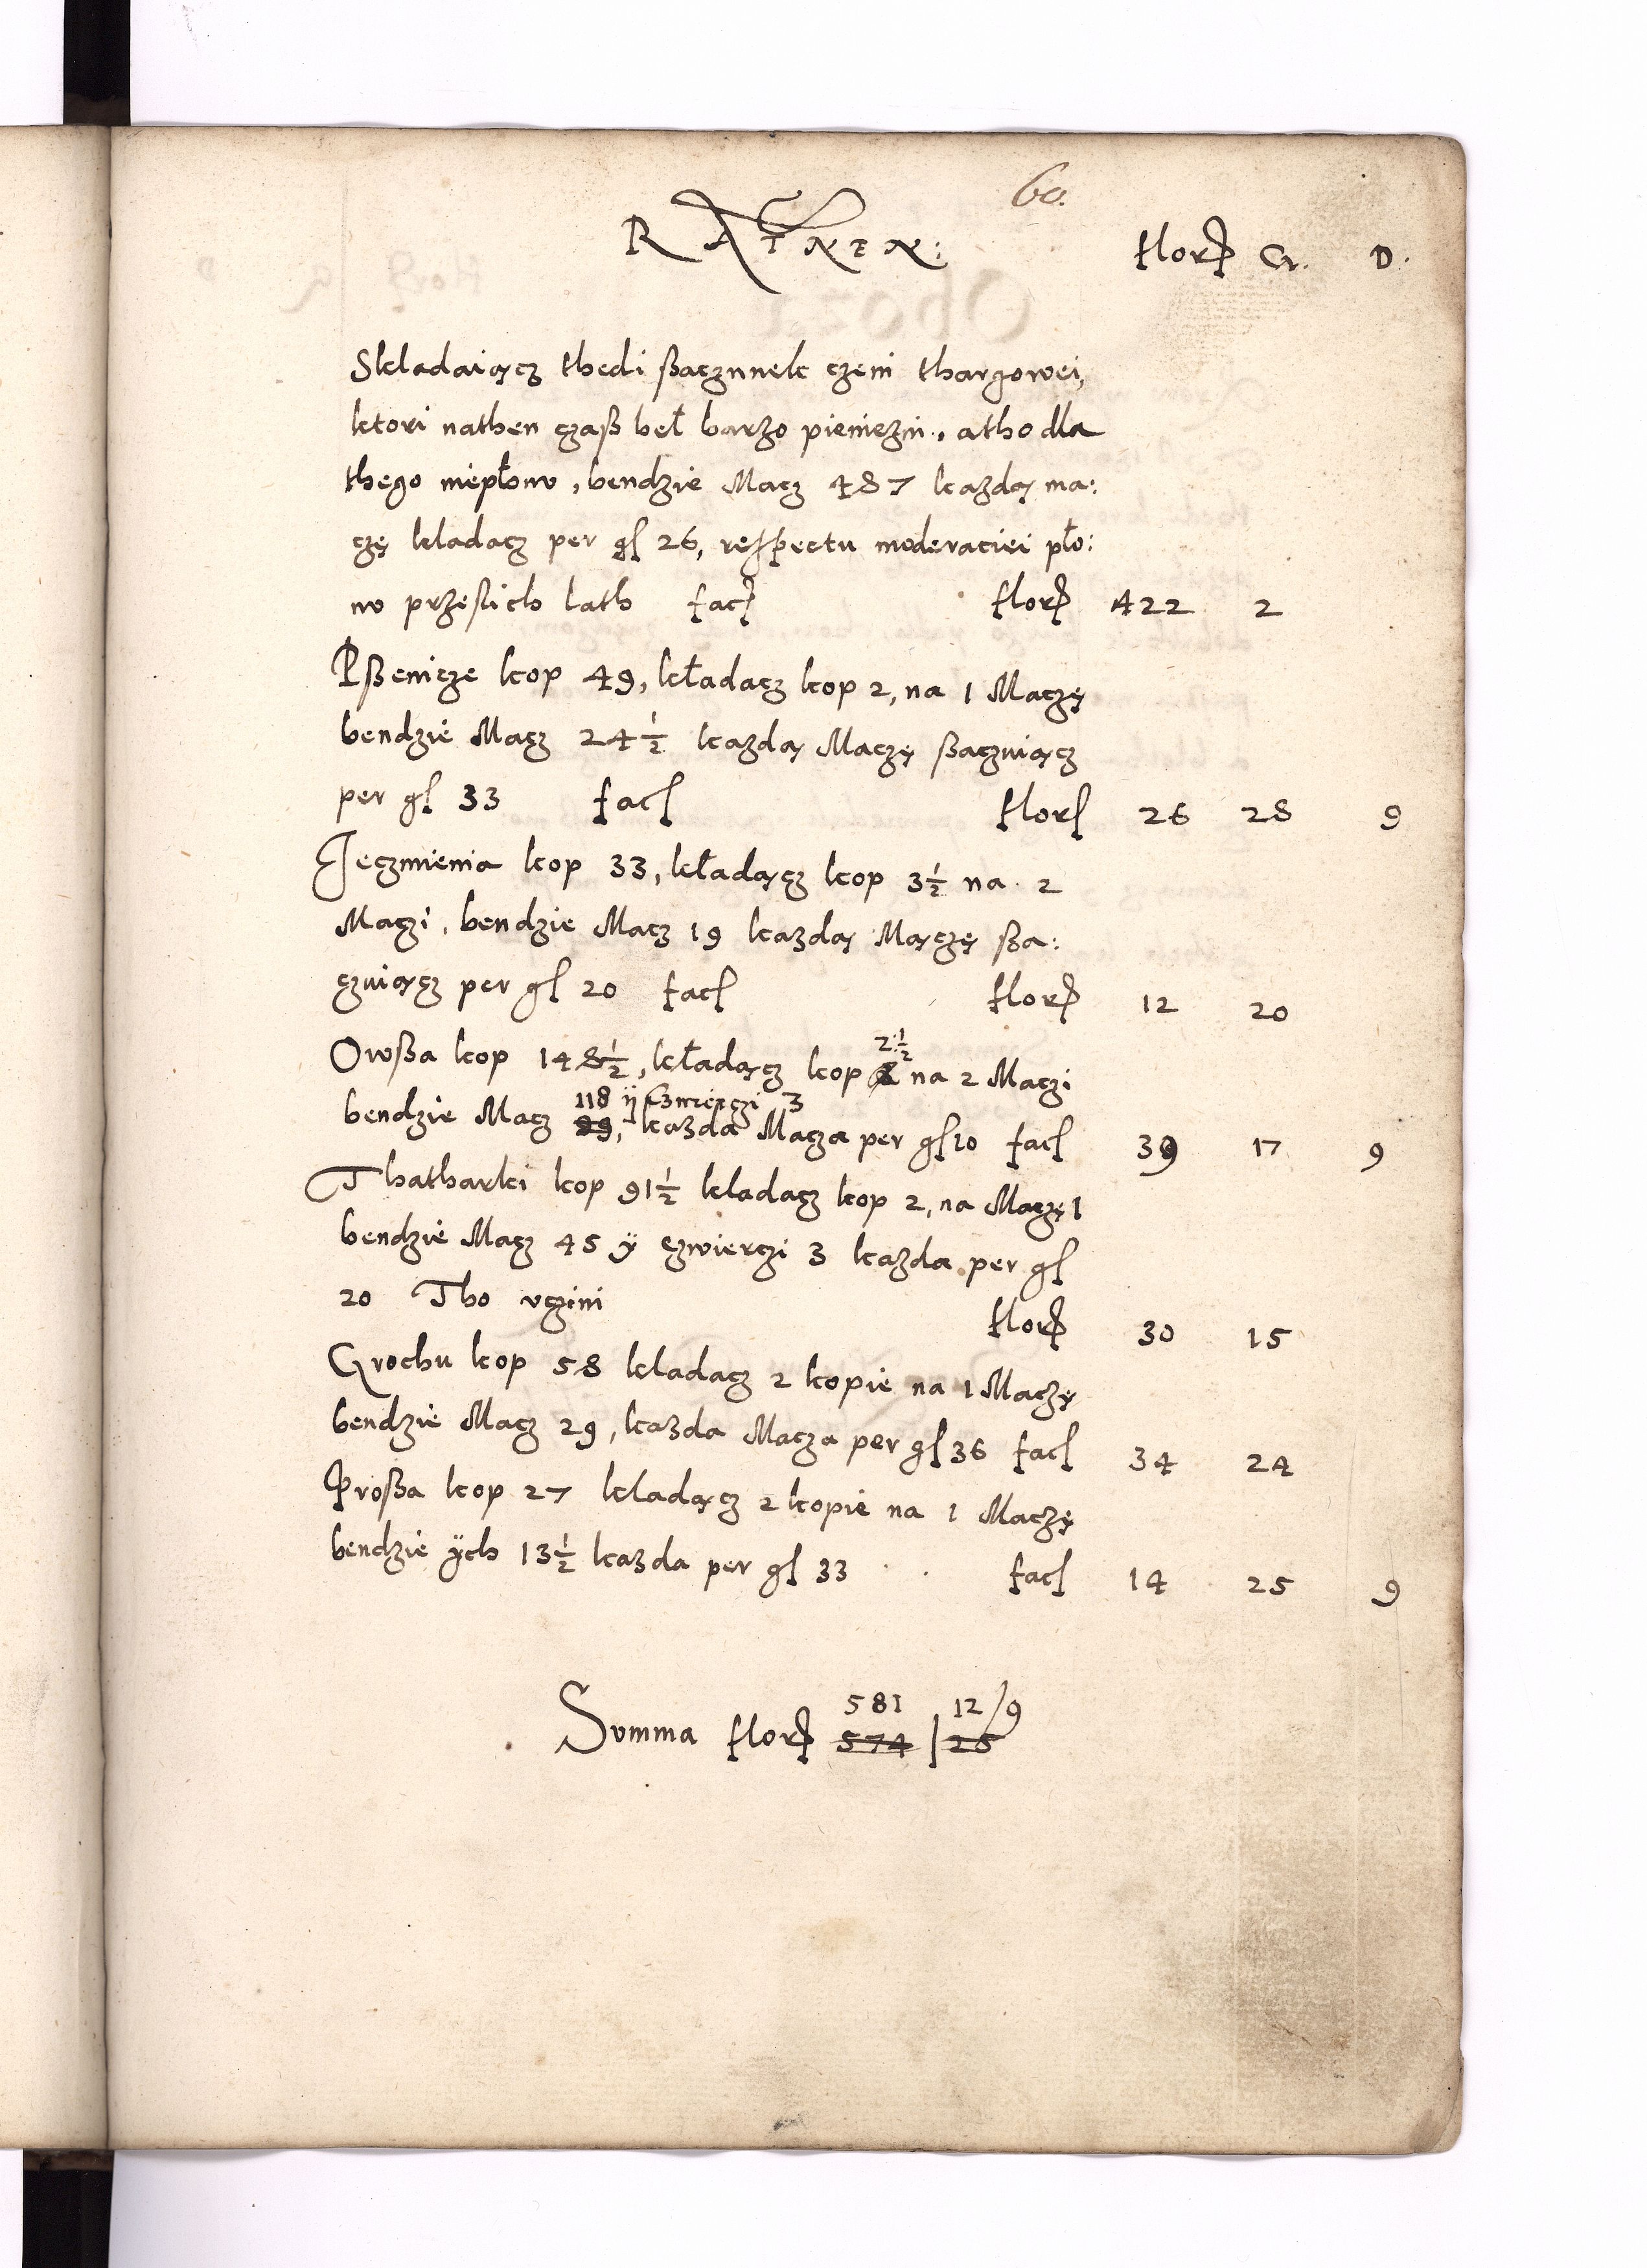 60.
RATNEN: flor. Gr. D.
Skladaiącz thedi ßaczunnek czeni thargowei,
ktori nathen czaß beł barzo pieniezni, atho dla
thego niepłonv, bendzie Macz 487 kazdą ma:
czę kladacz per gſ 26, respectu moderaciei pło:
nv przeslich lath facꝭ florꝭ 422 2
Pßenicze kop 49, kładacz kop 2, na 1 Maczę
bendzie Macz 24 1/2 kazdą Maczę ßaczuiącz
per gſ 33 facſ florſ 26 28 9
Jeczmienia kop 33, kładącz kop 3 1/2 na 2
Maczi, bendzie Macz 19 kazdą Mączę ßa:
czuiącz per gſ 20 facſ florꝭ 12 20
Owßa kop 148 1/2, kładącz kop 2 1/2 na 2 Maczi
118 ÿ Czwierczi 3
bendzie Macz 99, kazda Macza per gſ 10 facſ 39 17 9
Thatharki kop 91 1/2 kladacz kop 2, na Maczę 1
bendzie Macz 45 ÿ czwierczi 3 kazda per gſ
20 Tho vczini florꝭ 30 15
Grochu kop 58 kladacz 2 kopie na 1 Maczę
bendzie Macz 29, kazda Macza per gſ 36 facſ 34 24
Proßa kop 27 kladącz 2 kopie na 1 Maczę
bendzie ÿch 13 1/2 kazda per gſ 33 facſ 14 25 9
581 12/9
Summa florꝭ 574 | 25